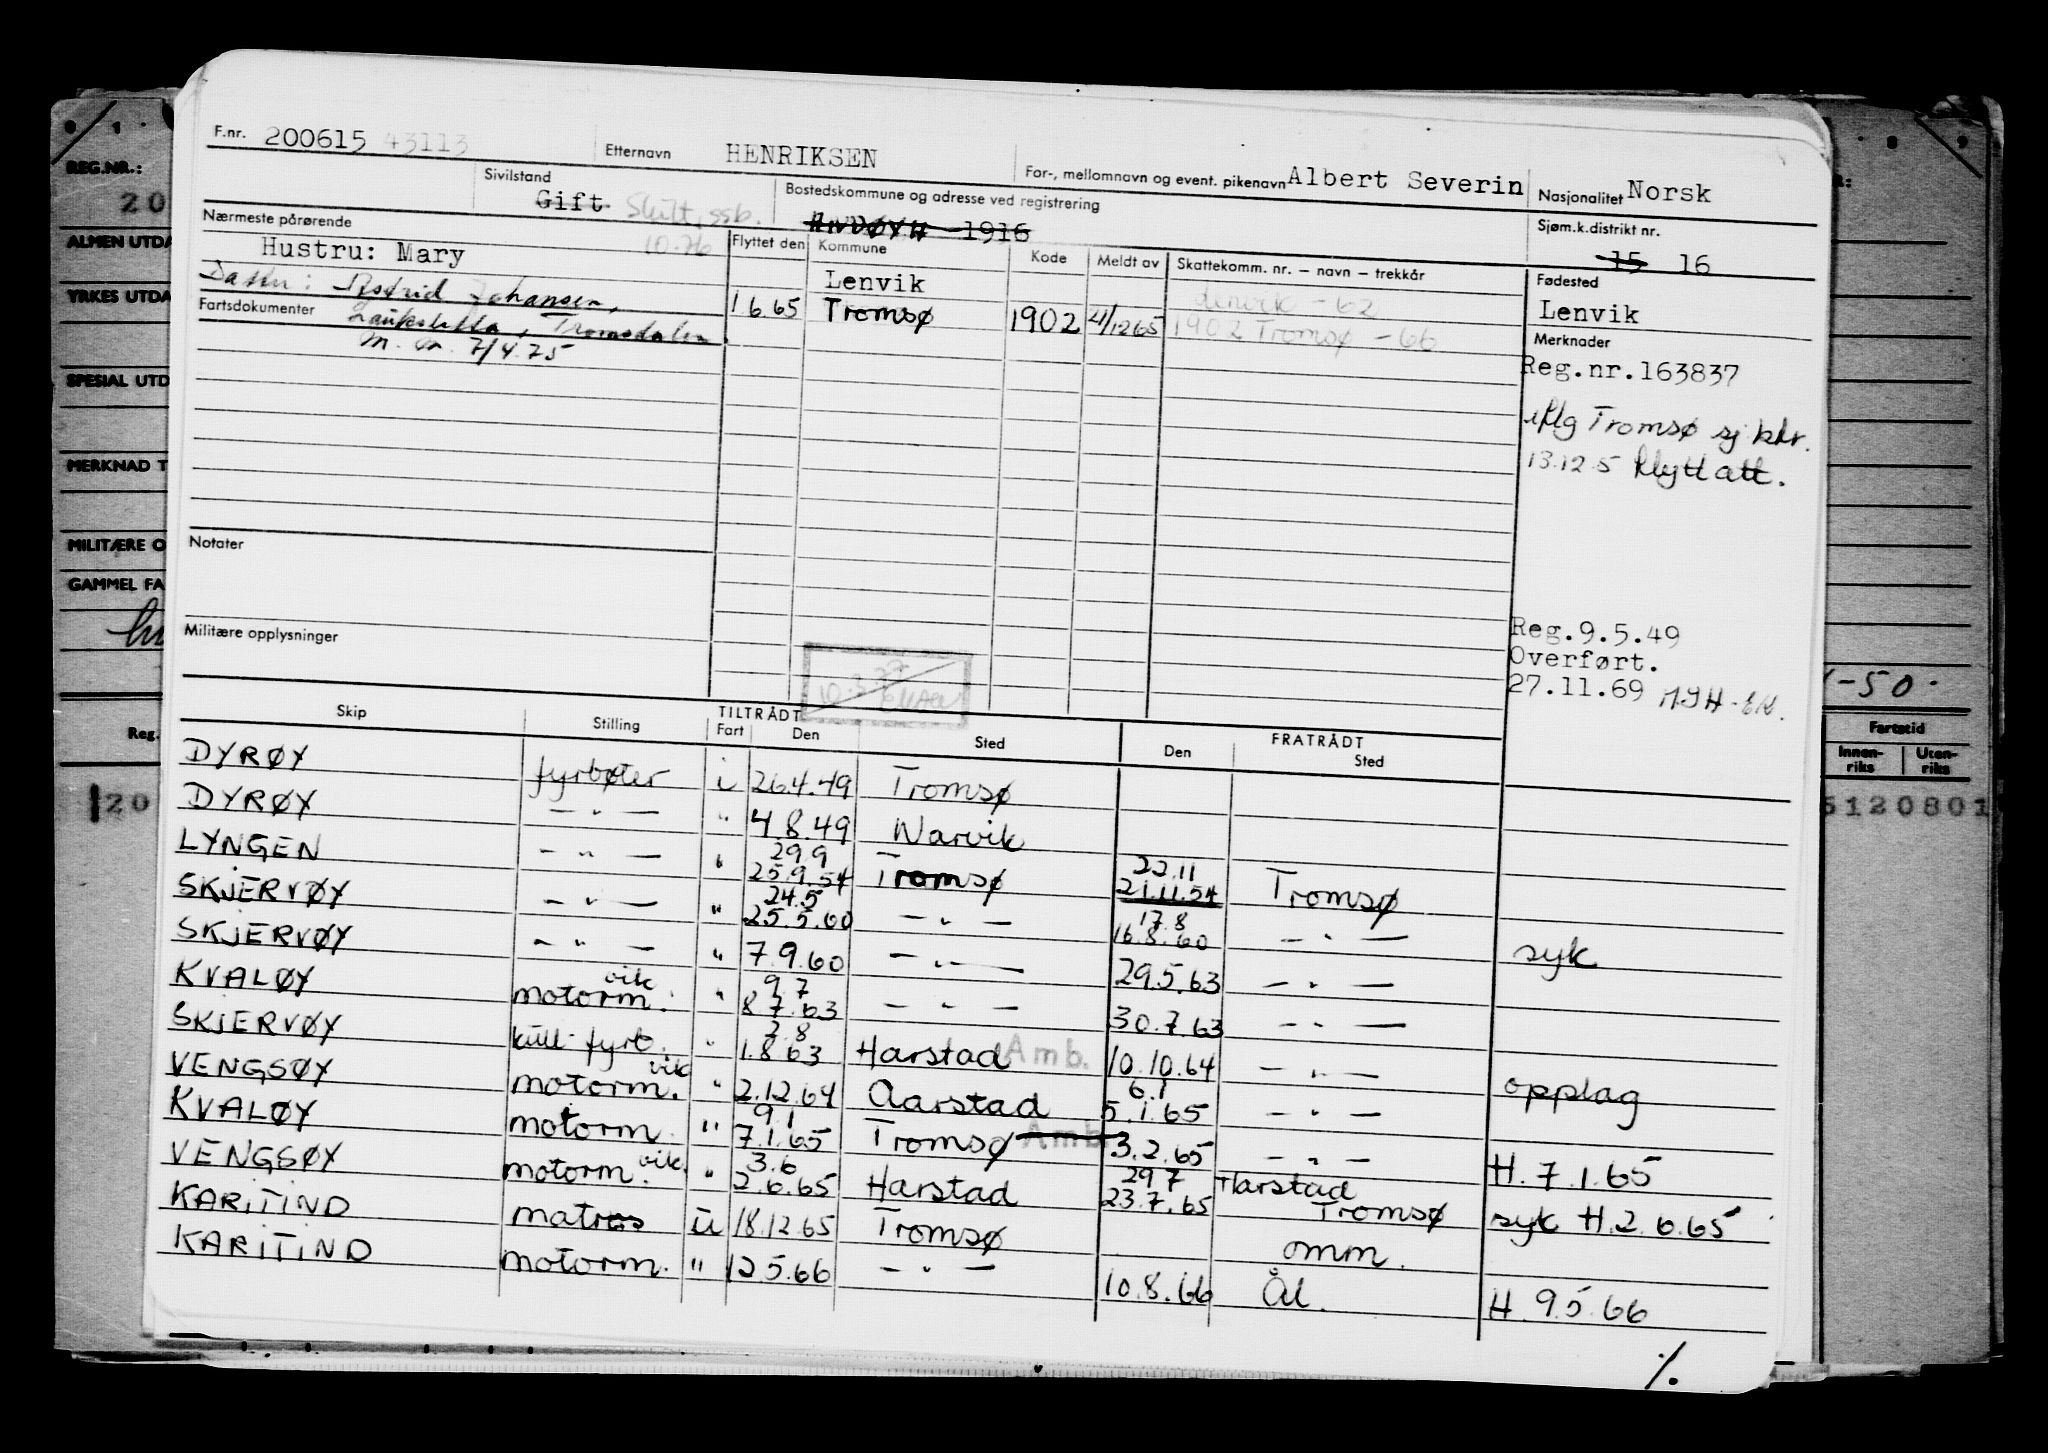 F.nr. 200615 43113 Etternavn HENRIKSEN For-, mellomnavn og event. pikenavn Albert Severin Nasjonalitet Norsk
Sivilstand Gift Skilt, ssb. 10.76 Bostedskommune og adresse ved registrering 1916 Sjøm.k.distrikt nr. 15 16
Nærmeste pårørende Flyttet den Kommune Kode Meldt av Skattekomm. nr. – navn – trekkår Fødested
Hustru: Mary Lenvik Lenvik – 62 Lenvik
Astrid Johansen, 1 6 65 Tromsø 1902 4/12 65 1902 Tromsø – 66
Fartsdokumenter Tromsdalen Merknader
7/4.75 Reg.nr.163837
iflg Tromsø sj ktr.
13.12 5 flytt att.
Notater
Militære opplysninger
Reg.9.5.49
Overført.
27.11.69
Skip Stilling TILTRÅDT FRATRÅDT
Fart Den Sted Den Sted
DYRØY fyrbøter i 26.4.49 Tromsø
DYRØY – " – " 4.8.49 Narvik
LYNGEN – " – " 29.9 25.9.54 Tromsø 22.11 21.11.54 Tromsø
SKJERVØY – " – " 24.5 25.5.60 – " – 17.8 16.8.60 – " – syk
SKJERVØY – " – " 7.9.60 – " – 29.5.63 – " –
KVALØY motorm. vik. " 9.7 8.7.63 – " – 30.7.63 – " –
SKJERVØY kull fyrb. " 2.8 1.8.63 Harstad Amb. 10.10.64 – " – opplag
VENGSØY motorm. vik " 2.12.64 Aarstad 6.1 5.1.65 – " –
KVALØY motorm. " 9.1 7.1.65 Tromsø Amb 3.2.65 – " – H.7.1.65
VENGSØY motorm. vik. " 3.6 2.6.65 Harstad 29 7 23.7.65 Harstad Tromsø syk H.2.6.65
KARITIND matros u 18.12.65 Tromsø omm.
KARITIND motorm. " 12 5.66 – " – 10.8.66 Ål. H. 9.5.66
%
REG.NR.:
20
ALMEN UTDA
YRKES UTDA
SPESIAL UTD
MERKNAD T
MILITÆRE O
GAMMEL FA
Reg.
20
-50.
Fartstid
Innen-riks Uten-riks
5120801